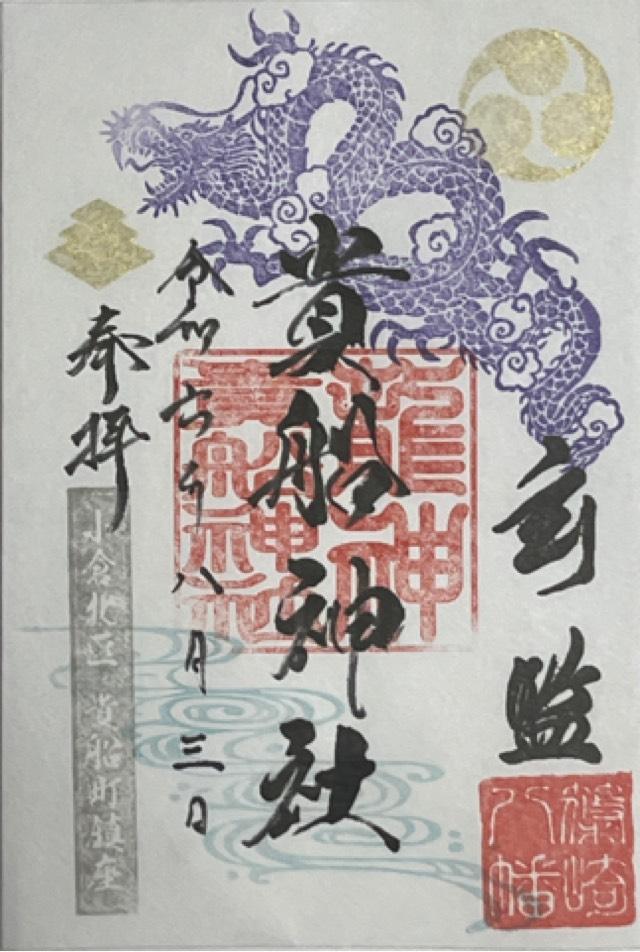 篠崎
八幡
貴船神社
龍神
貴船神社
令和六年八月三日
奉拝
小倉北区 貴船町鎮座